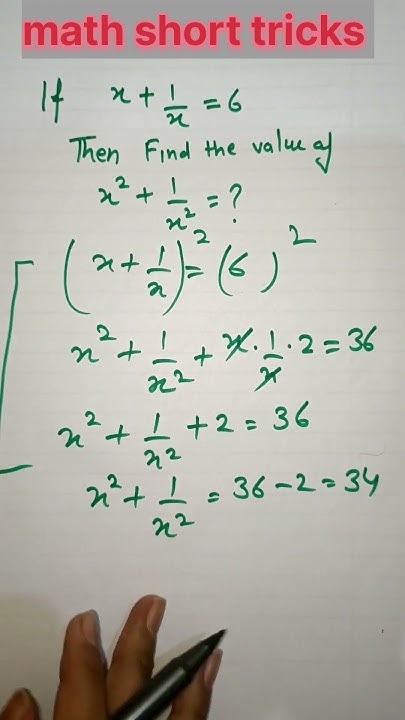 math short tricks
If x + 1/x = 6
Then Find the value of
x² + 1/x² = ?
(x + 1/x)² = (6)²
x² + 1/x² + x · 1/x · 2 = 36
x² + 1/x² + 2 = 36
x² + 1/x² = 36 - 2 = 34